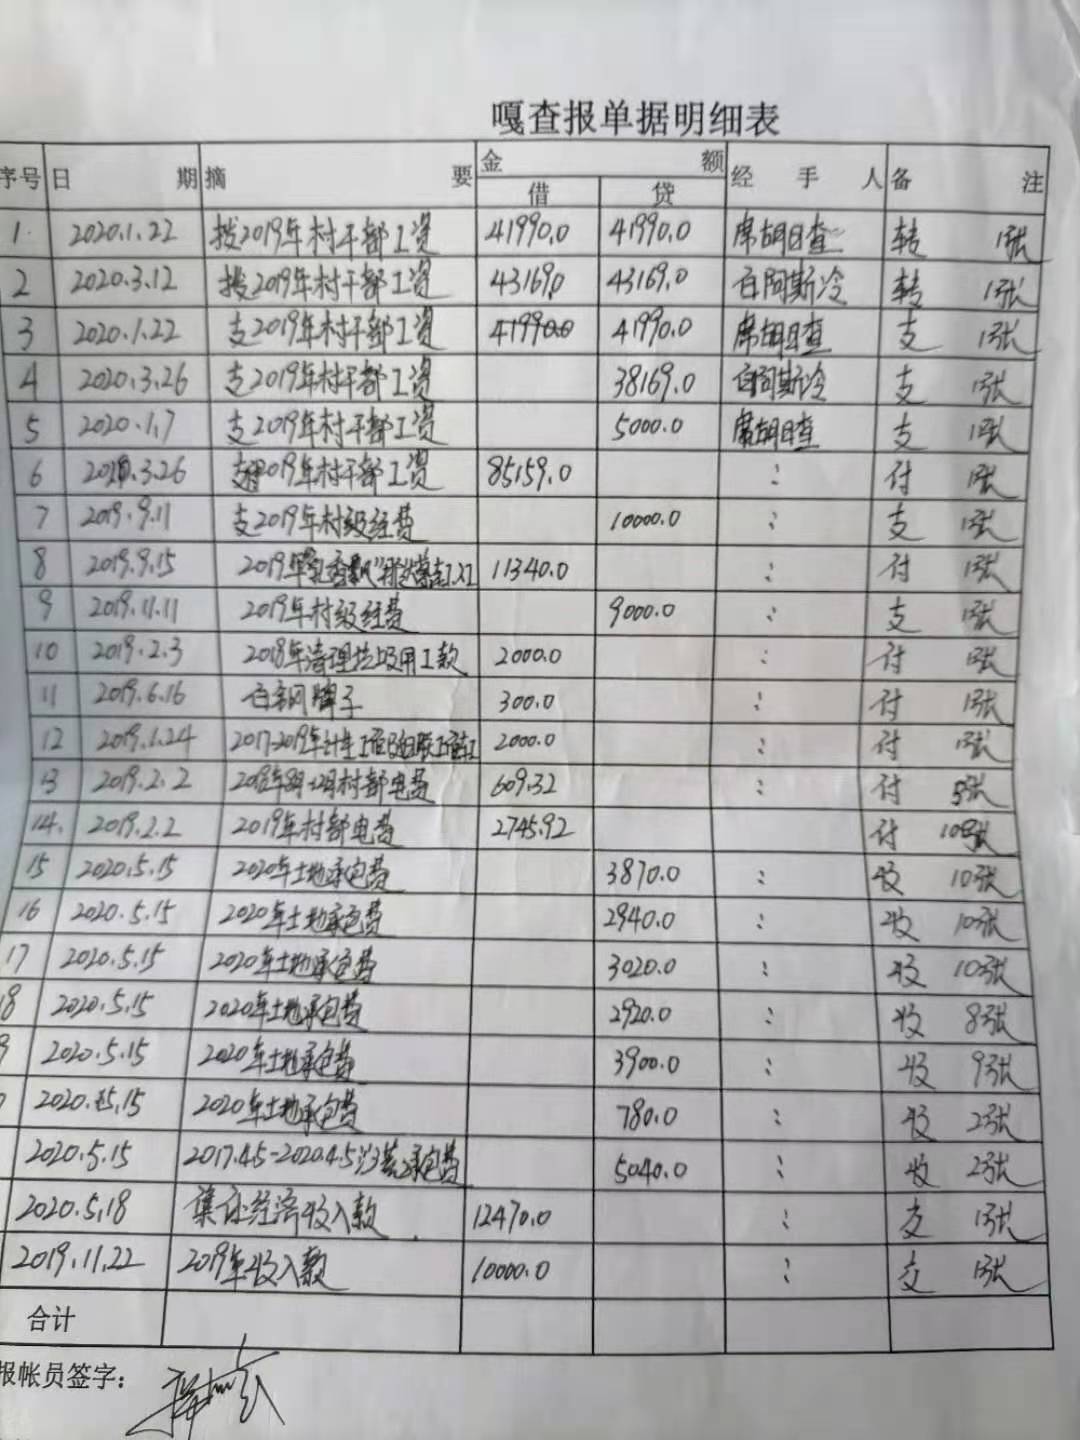 嘎查报单据明细表
序号 日期 摘要 金额 经手人 备注
借 贷
1 2020.1.22 拨2019年村干部工资 41990.0 41990.0 席胡日查 转 1张
2 2020.3.12 拨2019年村干部工资 43169.0 43169.0 白阿斯冷 转 1张
3 2020.1.22 支2019年村干部工资 41990.0 41990.0 席胡日查 支 1张
4 2020.3.26 支2019年村干部工资 38169.0 白阿斯冷 支 1张
5 2020.1.7 支2019年村干部工资 5000.0 席胡日查 支 1张
6 3.26 2019年村干部工资 85159.0 : 付 1张
7 2019.9.11 支2019年村级经费 10000.0 : 支 1张
8 2019.9.15 2019年 11340.0 : 付 1张
9 2019.11.11 2019年村级经费 9000.0 : 支 1张
10 2019.2.3 2018年清理垃圾用工款 2000.0 : 付 1张
11 2019.6.16 白钢牌子 300.0 : 付 1张
12 2019.1.24 2017-2019年计生 2000.0 : 付 1张
13 2019.2.2 村部电费 609.32 : 付
14. 2019.2.2 2019年村部电费 2745.92 付
15 2020.5.15 2020年土地承包费 3870.0 : 收 10张
16 2020.5.15 2020年土地承包费 2940.0 : 收 10张
17 2020.5.15 2020年土地承包费 3020.0 : 收 10张
18 2020.5.15 2020年土地承包费 2920.0 : 收 8张
9 2020.5.15 2020年土地承包费 3900.0 : 收 9张
2020.5.15 2020年土地承包费 780.0 : 收 2张
2020.5.15 2017.4.5-2020.4.5 承包费 5040.0 : 收 2张
2020.5.18 集体经济收入款 12470.0 : 支 1张
2019.11.22 2019年收入款 10000.0 : 支 1张
合计
报帐员签字：